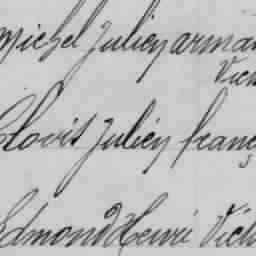 Michel Julien arman
Vict
Clovis Julien franç
Edmond Henri Victo